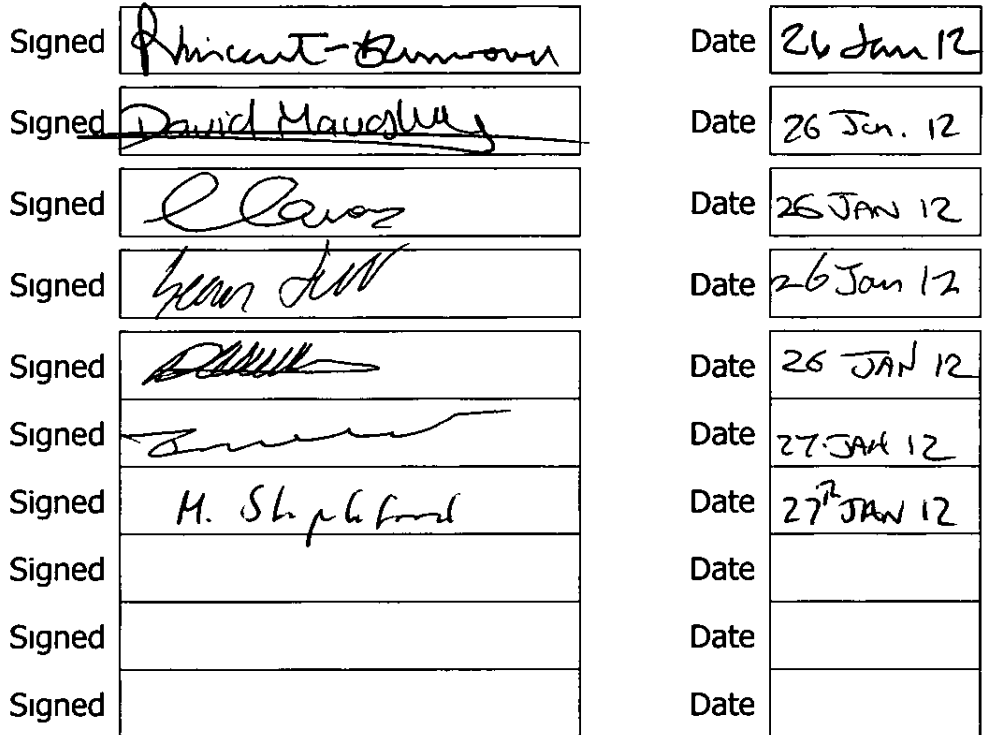 Signed Date 26 Jan 12
Signed David Date 26 Jan. 12
Signed Date 26 JAN 12
Signed Sean Date 26 Jan 12
Signed Date 26 JAN 12
Signed Date 27.JAN 12
Signed M. Date 27th JAN 12
Signed Date
Signed Date
Signed Date